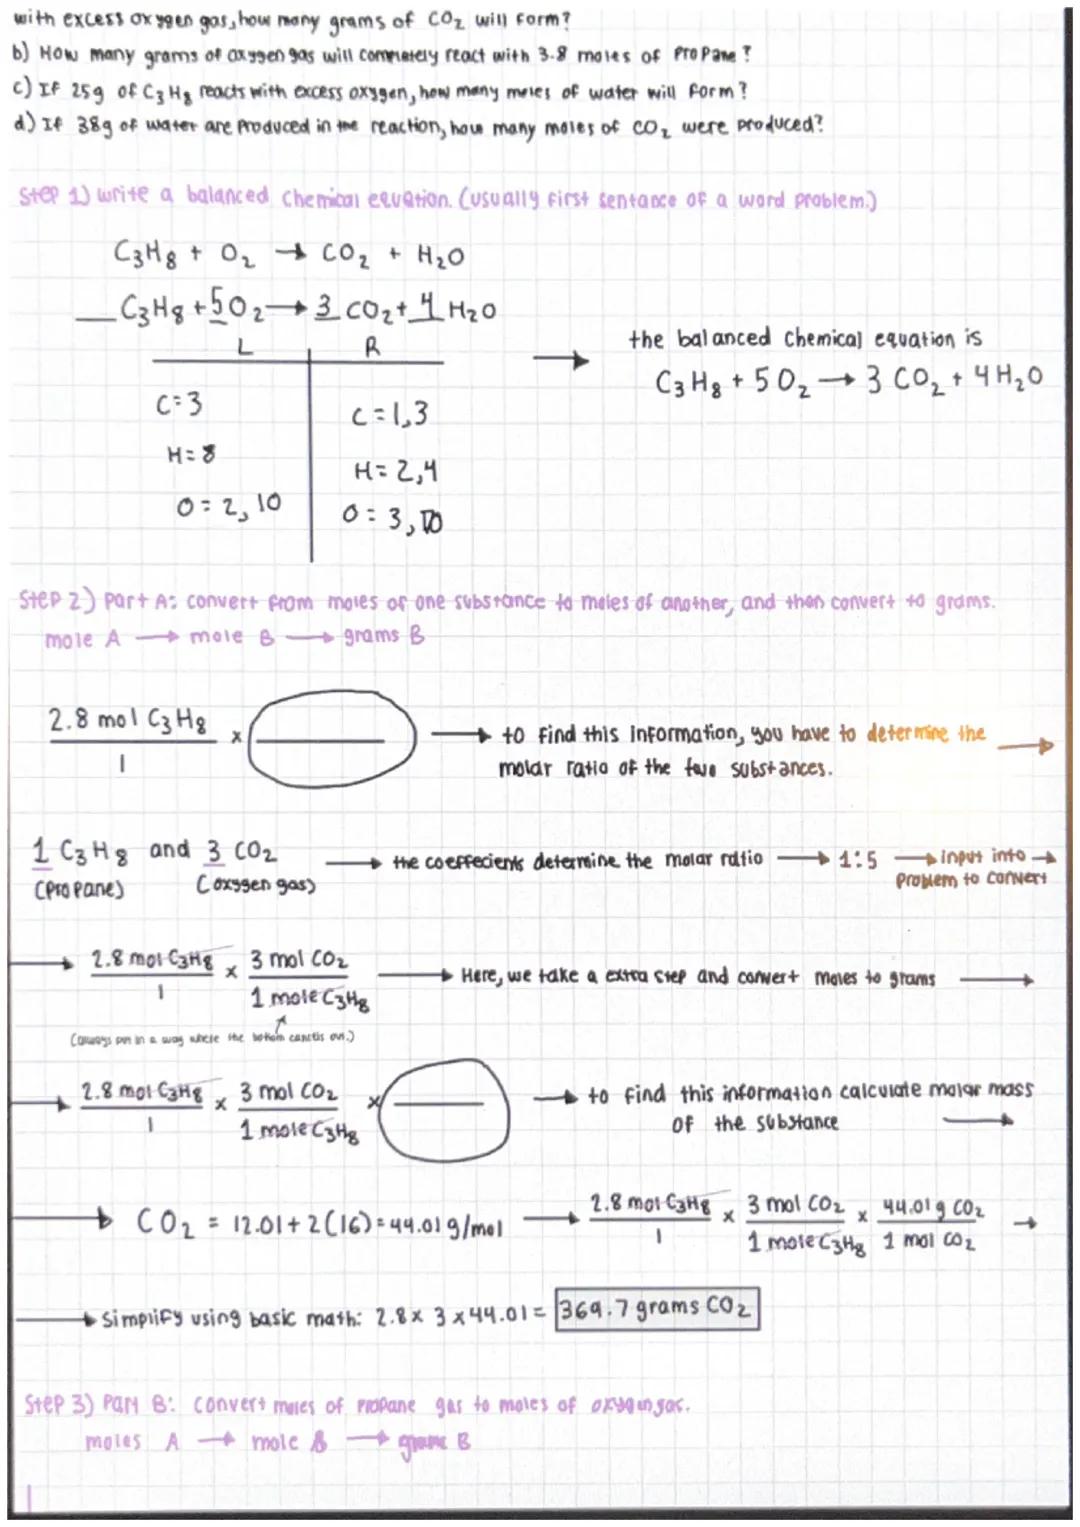 with excess oxygen gas, how many grams of CO₂ will form?
b) How many grams of oxygen gas will completely react with 3.8 moles of Propane?
c) If 25g of C₃H₈ reacts with excess oxygen, how many moles of water will form?
d) If 38g of water are produced in the reaction, how many moles of CO₂ were produced?
Step 1) write a balanced chemical equation. (usually first sentance of a word problem.)
C₃H₈ + O₂ → CO₂ + H₂O
__ C₃H₈ + 5 O₂ → 3 CO₂ + 4 H₂O
L R
the balanced chemical equation is
→ C₃H₈ + 5O₂ → 3 CO₂ + 4H₂O
C=3 C=1,3
H=8 H=2,4
O=2,10 O=3,10
Step 2) Part A: convert from moles of one substance to moles of another, and then convert to grams.
mole A → mole B → grams B
2.8 mol C₃H₈ / 1 x ___ → to find this information, you have to determine the →
molar ratio of the two substances.
1 C₃H₈ and 3 CO₂ → the coeffecients determine the molar ratio → 1:5 → input into →
(Propane) (oxygen gas) problem to convert
→ 2.8 mol C₃H₈ / 1 x 3 mol CO₂ / 1 mole C₃H₈ → Here, we take a extra step and convert moles to grams →
(always put in a way where the bottom cancels out.)
→ 2.8 mol C₃H₈ / 1 x 3 mol CO₂ / 1 mole C₃H₈ x ___ → to find this information calculate molar mass
of the substance →
→ CO₂ = 12.01 + 2(16) = 44.01 g/mol → 2.8 mol C₃H₈ / 1 x 3 mol CO₂ / 1 mole C₃H₈ x 44.01 g CO₂ / 1 mol CO₂ →
→ simplify using basic math: 2.8 x 3 x 44.01 = 369.7 grams CO₂
Step 3) Part B: convert moles of propane gas to moles of oxygen gas.
moles A → mole B → grams B